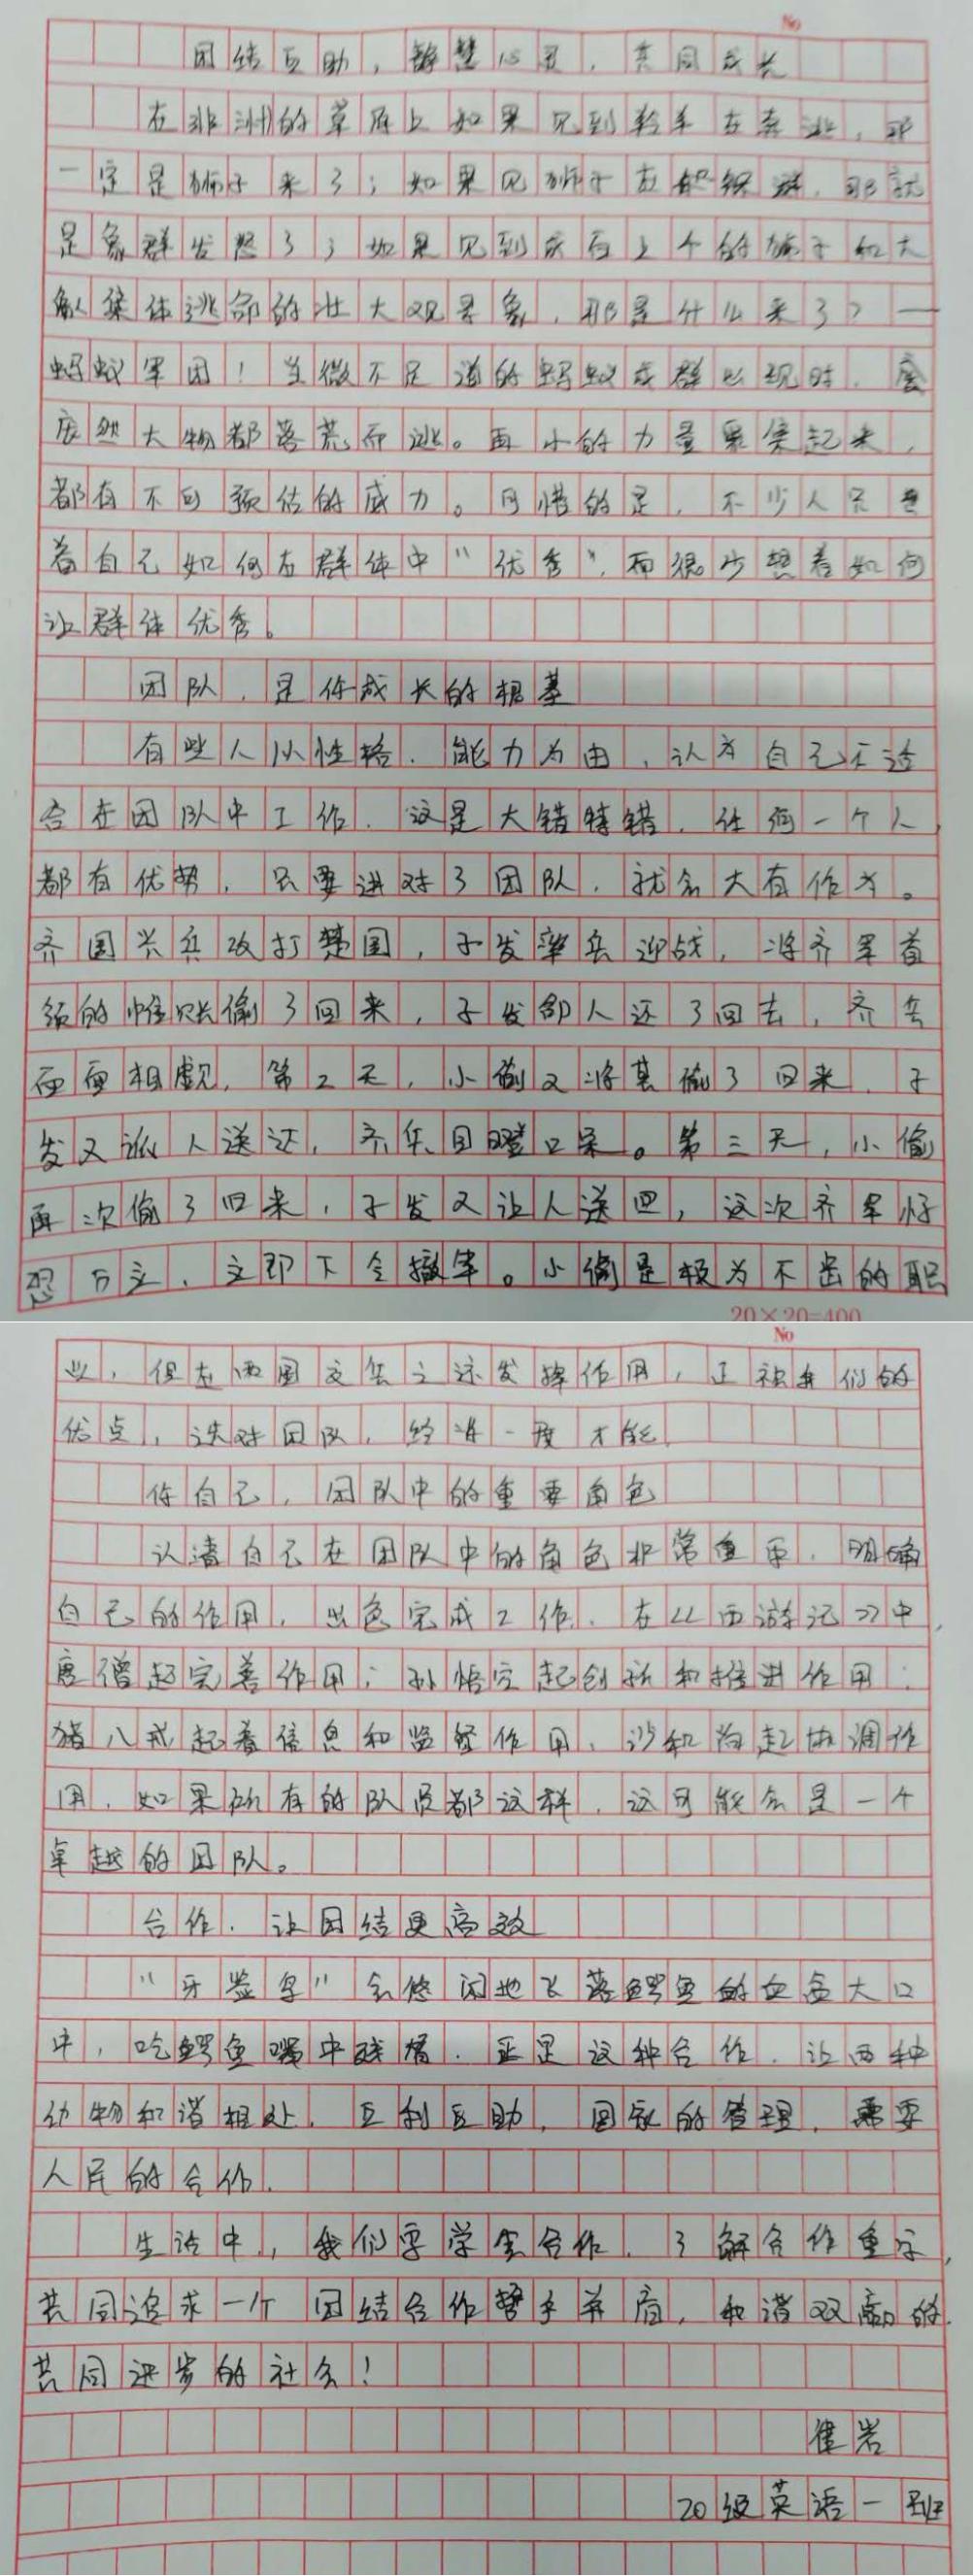 No
团结互助，智慧心灵，共同成长
在非洲的草原上如果见到羚羊在奔逃，那
一定是狮子来了；如果见狮子在躲避，那就
是象群发怒了；如果见到成百上千的狮子和大
象集体逃命的壮大观景象，那是什么来了？—
蚂蚁军团！当微不足道的蚂蚁成群出现时，
庞然大物都落荒而逃。再小的力量聚集起来，
都有不可预估的威力。可惜的是，不少人只想
着自己如何在群体中“优秀”，而很少想着如何
让群体优秀。
团队，是你成长的根基
有些人以性格、能力为由，认为自己不适
合在团队中工作，这是大错特错，任何一个人
都有优势，只要进对了团队，就会大有作为。
齐国兴兵攻打楚国，子发率兵迎战，将齐军首
领的帷帐偷了回来，子发却人还了回去，齐兵
面面相觑，第2天，小偷又将其偷了回来，子
发又派人送还，齐军目瞪口呆。第三天，小偷
再次偷了回来，子发又让人送回，这次齐军惊
恐万立，立即下令撤军。小偷是极为不齿的职
20×20=400
No
业，但在两国交兵之还发挥作用，正视我们的
优点，选对团队，终冲一展才能。
你自己，团队中的重要角色
认清自己在团队中的角色非常重要，明确
自己的作用，出色完成工作，在《西游记》中，
唐僧起完善作用；孙悟空起创新和推进作用；
猪八戒起着信息和监督作用、沙和尚起协调作
用，如果所有的队员都这样，这可能会是一个
卓越的团队。
合作，让团结更高效
“牙签鸟”会悠闲地飞落鳄鱼的血盆大口
中，吃鳄鱼嘴中残屑，正是这种合作，让两种
动物和谐相处，互利互助，国家的管理，需要
人民的合作。
生活中，我们要学会合作，了解合作重于，
共同追求一个团结合作携手并肩，和谐双赢的
共同进步的社会！
律岩
20级英语一班